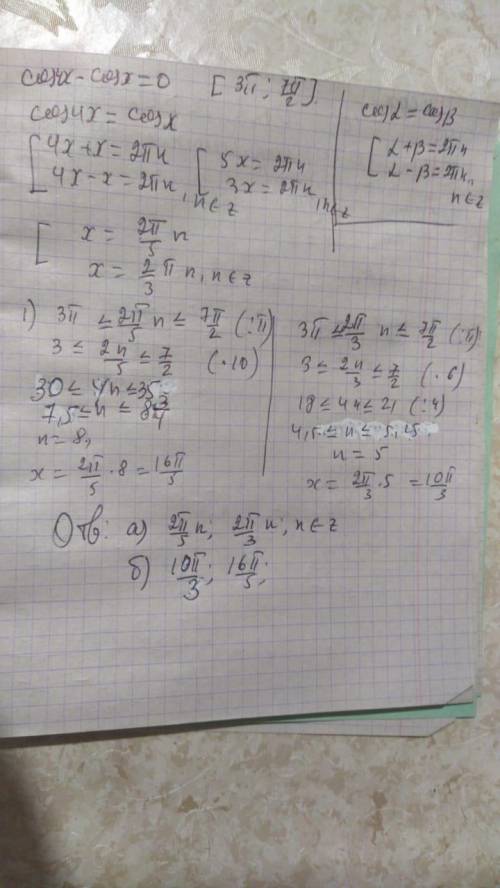 cos4x - cosx = 0 [3π; 7π/2].
cos4x = cosx
[4x+x = 2πn
[4x-x = 2πn, n∈z
[5x = 2πn
3x = 2πn, n∈z
cosα = cosβ
[α+β = 2πn
α-β = 2πn,
n∈z
[x = 2π/5 n
x = 2/3 π n, n∈z
1) 3π ≤ 2π/5 n ≤ 7π/2 (:π)
3 ≤ 2n/5 ≤ 7/2 (·10)
30 ≤ 4n ≤ 35
7,5 ≤ n ≤ 8 3/4
n = 8,
x = 2π/5 · 8 = 16π/5
3π ≤ 2π/3 n ≤ 7π/2 (:π)
3 ≤ 2n/3 ≤ 7/2 (·6)
18 ≤ 4n ≤ 21 (:4)
4,5 ≤ n ≤ 5,25
n = 5
x = 2π/3 · 5 = 10π/3
Отв: а) 2π/5 n; 2π/3 n; n∈z
б) 10π/3; 16π/5;